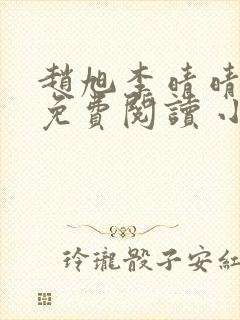 趙旭李晴晴
免費閱讀小
玲瓏骰子安紅